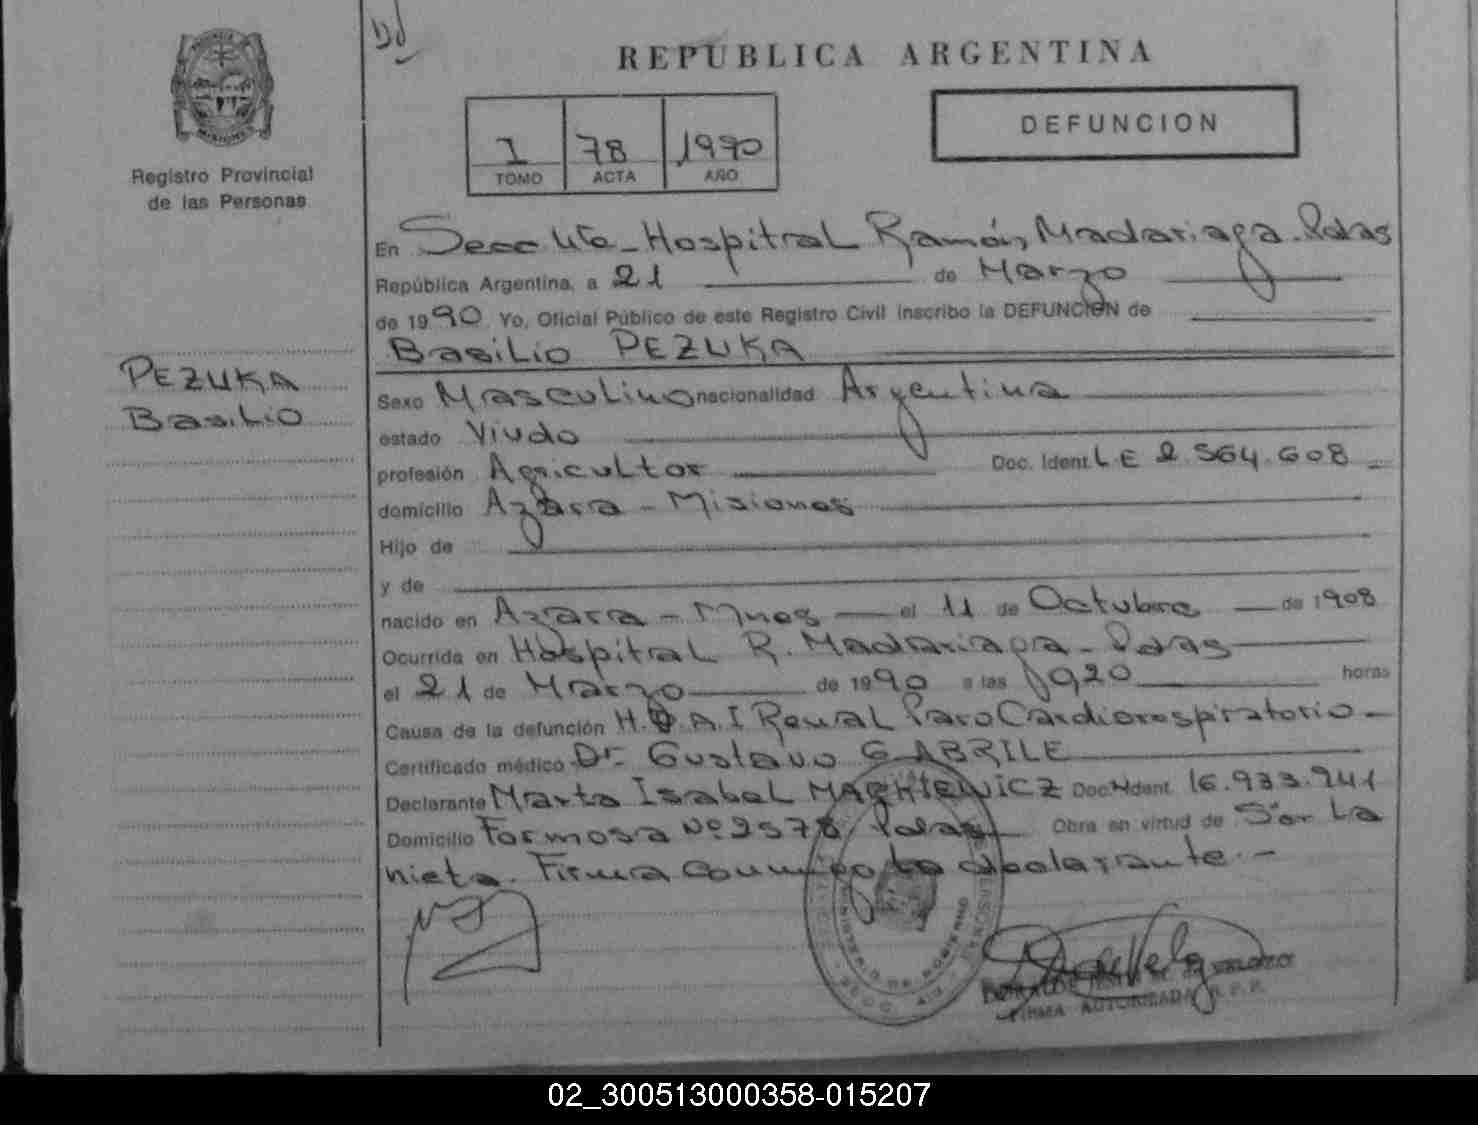 REPUBLICA ARGENTINA
DEFUNCION
1 78 1990
TOMO ACTA AÑO
MISIONES
Registro Provincial
de las Personas
PEZUKA
Basilio
En Secc 4ta - Hospital Ramón Madariaga. Pdas
República Argentina, a 21 de Marzo
de 1990 Yo, Oficial Público de este Registro Civil inscribo la DEFUNCION de
Basilio PEZUKA
Sexo Masculino nacionalidad Argentina
estado Viudo
profesión Agricultor Doc. Ident. LE 2.564.608
domicilio Azara - Misiones
Hijo de
y de
nacido en Azara - Mnes el 11 de Octubre de 1908
Ocurrida en Hospital R. Madariaga - Pdas
el 21 de Marzo de 1990 a las 1920 horas
Causa de la defunción H. D. A. I Renal Paro Cardiorespiratorio -
Certificado médico Dr. Gustavo GABRILE
Declarante Marta Isabel Doc. Ident. 16.933.241
Domicilio Formosa Nº 2578 Pdas Obra en virtud de Ser La
nieta. Firma conmigo la declarante. -
FIRMA AUTORIZADA R. P. P.
02_300513000358-015207